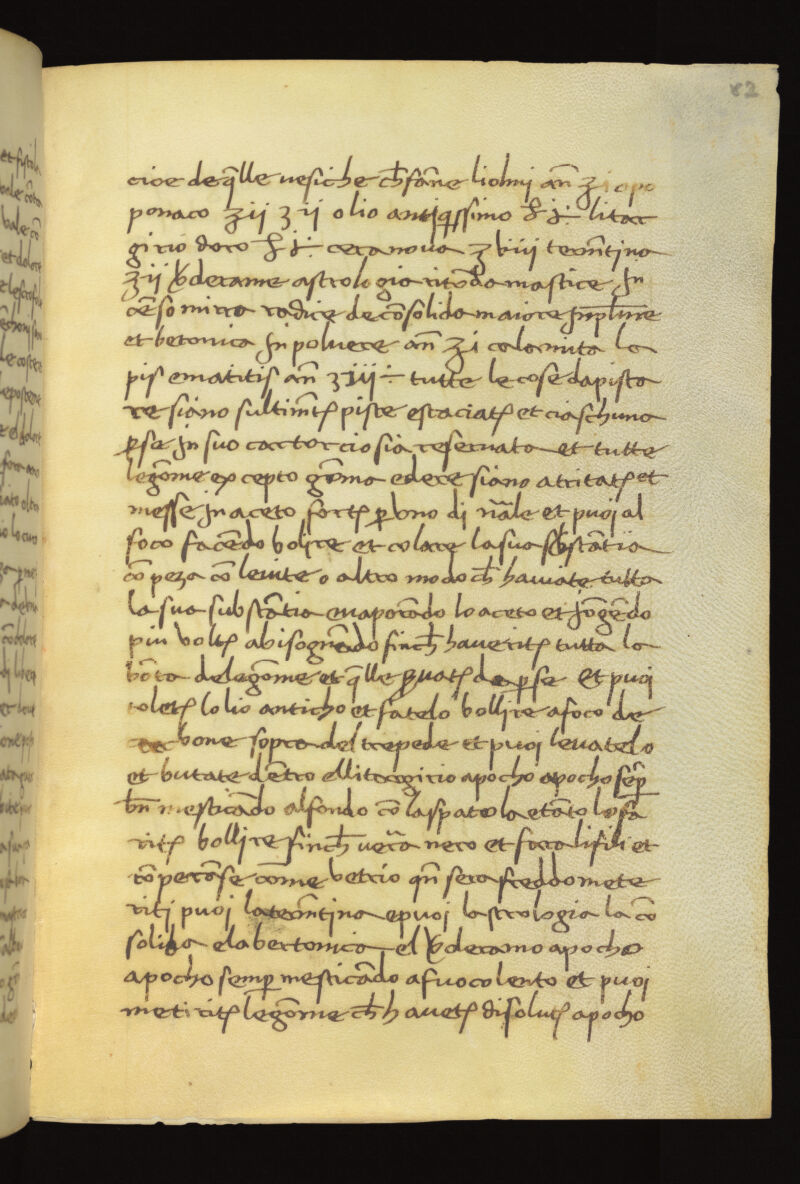 82
cioe de q̃lle uesiche ch̃ fãne li olmi an̄ ʒ i opo
ponaco ʒ ii ʒ ii olio antiq̃ssimo litar
girio doro cera noua ʒ viii terẽtina
ʒ ii v̓derame astrologia ritõda mastice In
cẽso mirra radice de cõsolida maiore
et betonica In poluere an̄ ʒ i calamita la
pis ematitis an̄ ʒ iii tutte le cose da pista
re siano sultimẽtꝭ piste e staciatꝭ et ciaschuna
ꝑ se In suo cartoccio sia reseruata et tutte
le gõme excepto gõma edere siano atritatꝭ et
messe In aceto fortꝭ ꝑ uno di et puoi al
foco facẽdo bolire et colare la sua substãtia
cõ peza cõ leuite o altro modo ch̃ haviate tutta
la sua substãtia euaporãdo lo aceto et Iõgẽdo
piu voltꝭ abisognẽdo finch̃ haueritꝭ tutta la
bõta de le gõme et q̃lle ẜuatꝭ da ꝑ se Et puoi
toletꝭ lo lio anticho et fatelo bollire a foco de
carbone sopra del trepede et puoi leuatelo
et butate dẽtro el litargirio apocho apocho sẽꝑ
bñ mesticãdo al fondo cõ la spatola e tãto lo fa
ritꝭ bollire finch̃ uẽra nero et fara li fili et
rõperase come vetrio qñ sera freddo mete
riti puoi la terẽtina e puoi lastrologia la cõ
solida e la bertonica el v̓deramo apocho
apocho semꝑ mesticãdo a fuoco lento et puoi
metiritꝭ le gõme ch̃ hauetꝭ disolutꝭ apocho